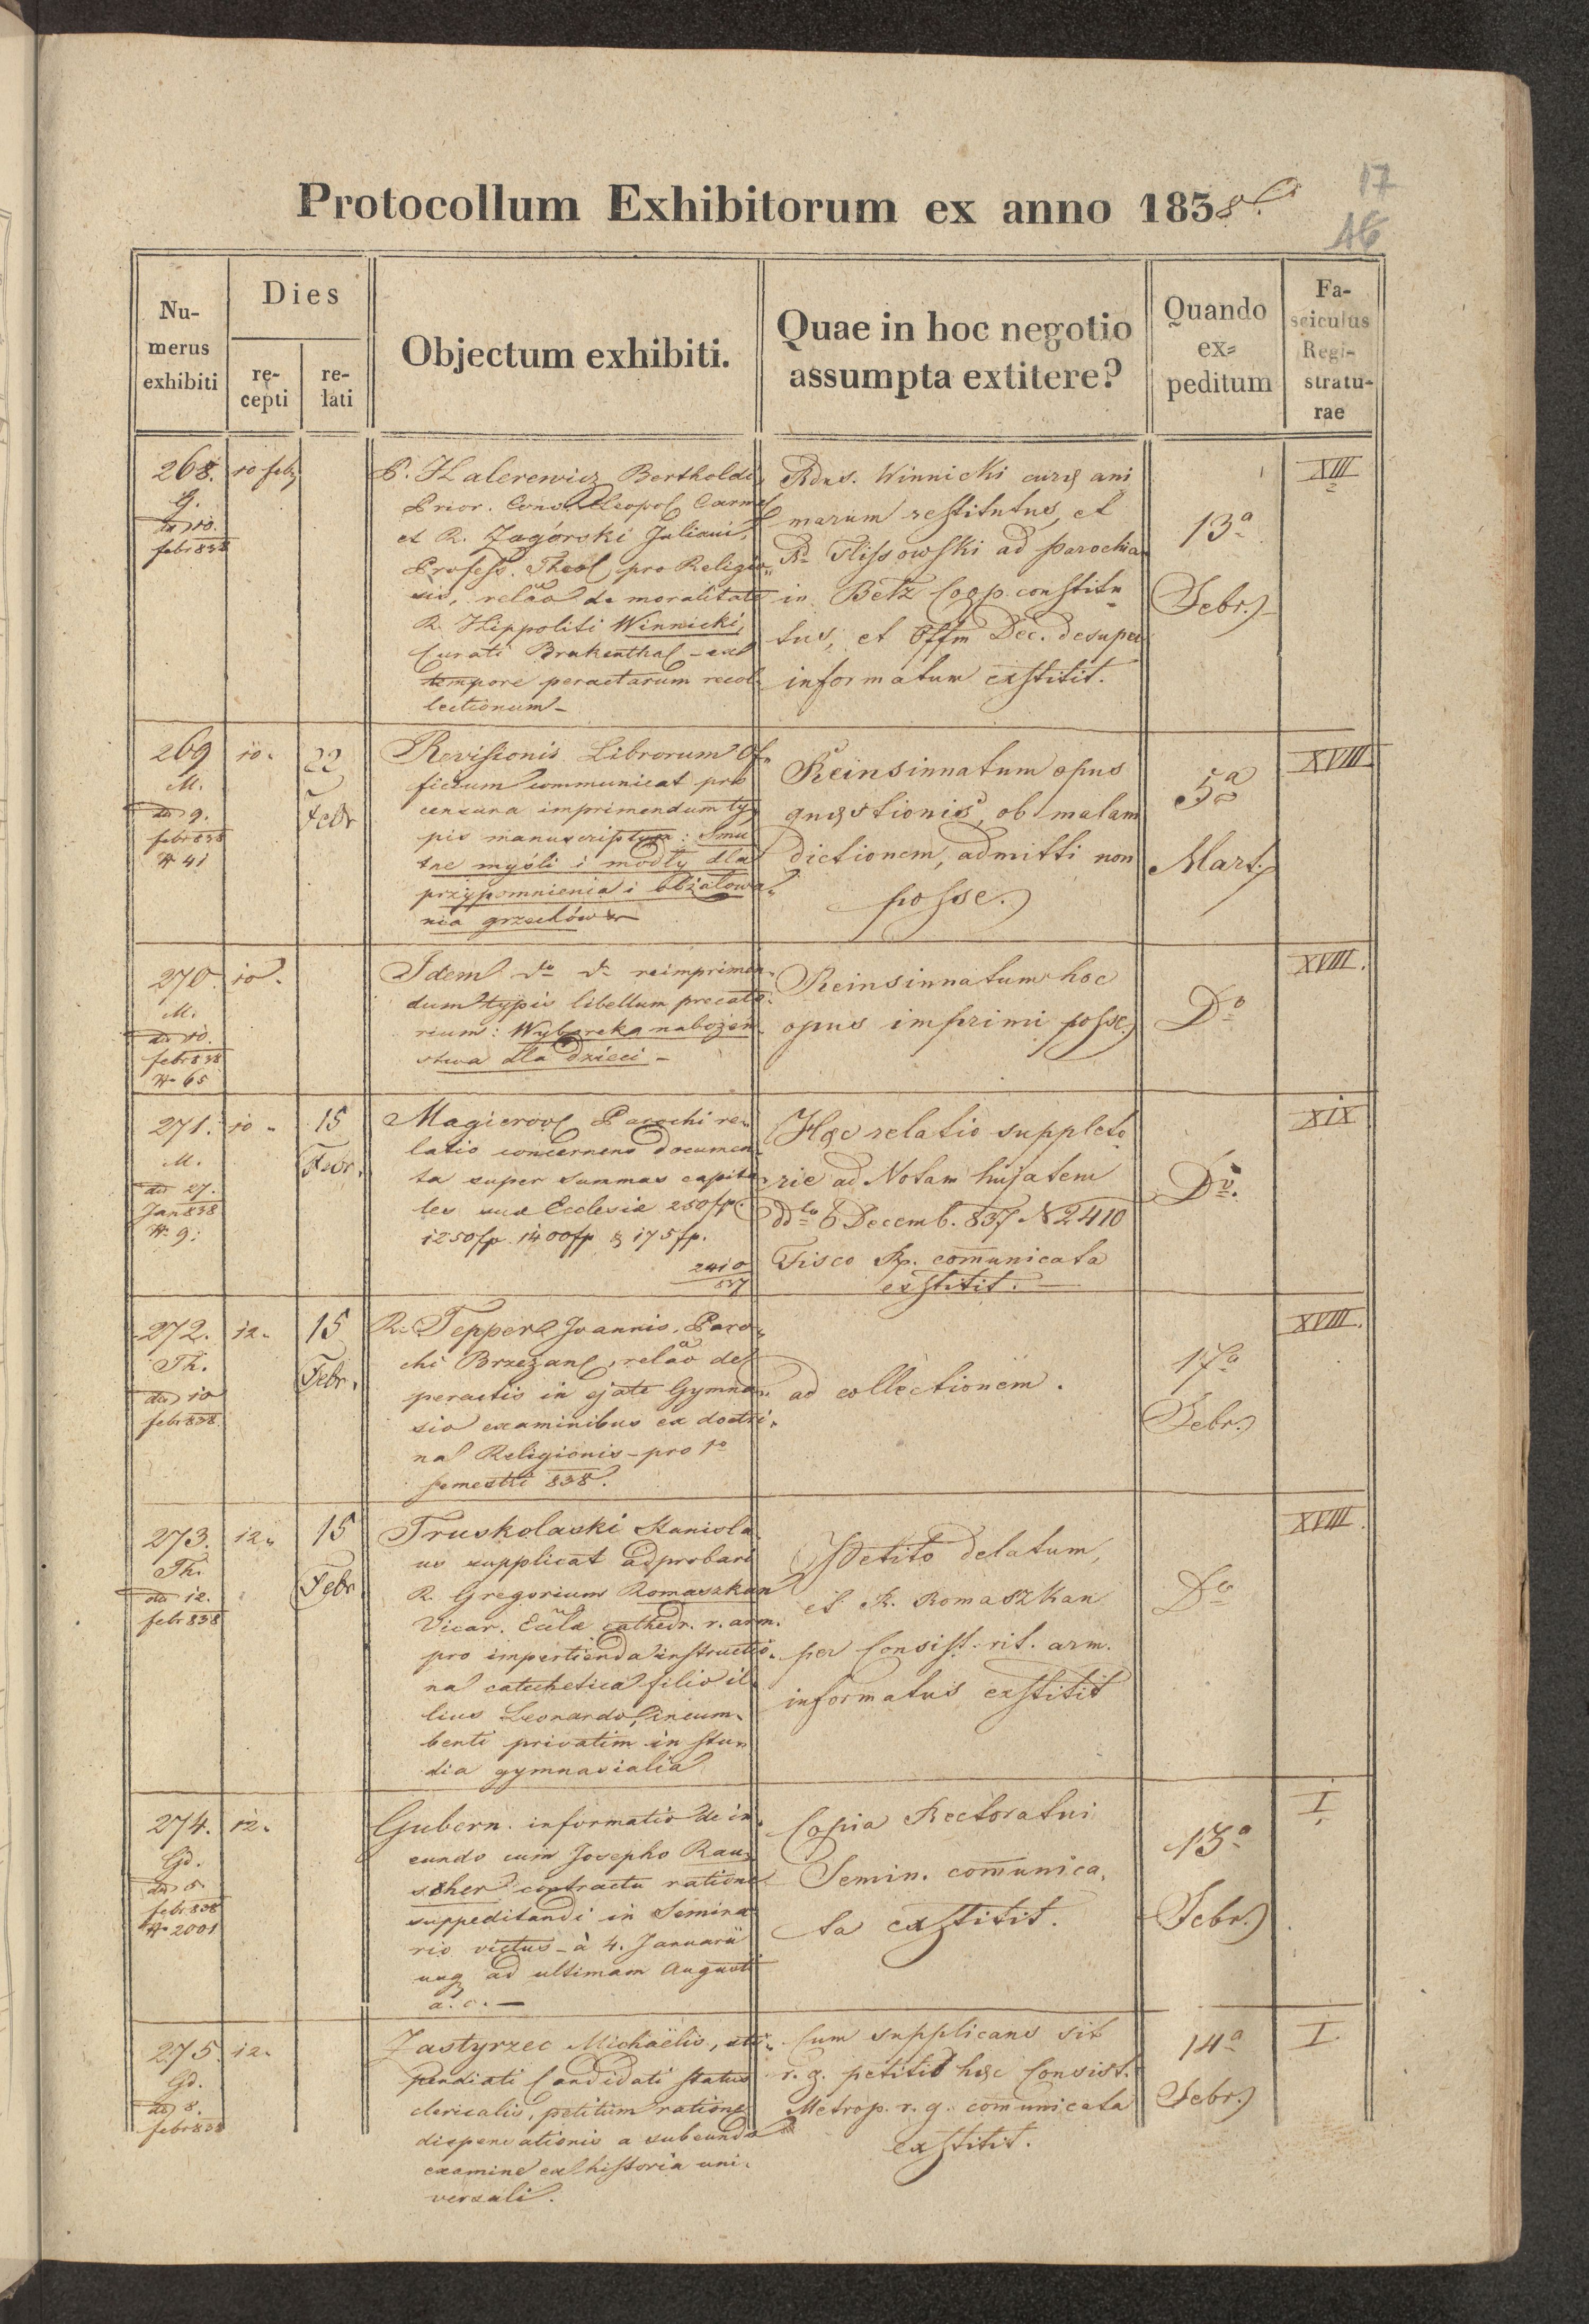 17
16
Protocollum Exhibitorum ex anno 1838.
Nu-
merus
exhibiti
Dies
re-
cepti
re-
lati
Objectum exhibiti.
Quae in hoc negotio
assumpta extitere?
Quando
ex=
peditum
Fa-
sciculus
Regi-
stratu-
rae
268.
G.
dd 10.
febr 838
10 febr
P. Halerewicz Bertholdi,
Prior. Conv. Leopol Carmel
et R. Zagórski Juliani,
Profess. Theol pro Religio„
sis, relão de moralitate
R. Hippoliti Winnicki,
Curati Brukenthal – ex
tempore peractarum recol„
lectionum –
Rdus. Winnicki curæ ani
marum restitutus, et
Rd Flissowski ad parochiam
in Betz Coop. constitu
tus, et Offm Dec. desuper
informatum exstitit.
13a
Febr.
XIII
269
M.
dd 9.
febr 838
N 41
10.
22
Febr
Revisionis Librorum Of„
ficium communicat pro
censura imprimendum ty„
pis manuscriptum: Smu
tne myśli i modły dla
przypomnienia i obżałowa„
nia grzechów
Reinsinuatum opus
quæstionis, ob malam
dictionem, admitti non
posse.
5a
Mart.
XVIII
270.
M.
dd 10.
febr 838
N 65
10.
Idem do do reimprimen„
dum typis libellum precato„
rium: Wyboreka nabożeń
stwa dla dzieci –
Reinsinuatum hoc
opus imprimi posse.
Do
XVIII.
271.
M.
dd 27.
Jan 838
N 9.
10 „
15
Febr.
Magierov Parochi re„
latio concernens documen„
ta super summas capita„
les suæ Ecclesiæ 250 fp.
1250 fp. 1400 fp & 175 fp.
2410
837
Hæc relatio suppleto
rie ad Notam hujatem
ddto 6 Decemb. 837 N 2410
Fisco Rp. comunicata
exstitit. —
Do.
XIX
272.
Th.
dd 10
febr 838.
12.
15
Febr.
R. Tepper Joannis, Paro„
chi Brzezan, relão de
peractis in ejate Gymna„
sio examinibus ex doctri„
na Religionis – pro 1o
semestri 838.
ad collectionem.
17a
Febr.
XVIII.
273.
Th.
dd 12.
febr 838
12„
15
Febr.
Truskolaski Stanisla
us supplicat adprobari
R. Gregorium Romaszkan
Vicar. Eccla cathedr. r. arm.
pro impertienda instructio„
na catechetica filio il„
lius Leonardo, incum„
benti privatim in stu„
dia gymnasialia
Petito delatum,
et R. Romaszkan
per Consist. rit. arm.
informatus exstitit
Do
XVIII.
274.
Gd.
dd 5.
febr 838
N 2001
12.
Gubern. informatio de in„
eundo cum Josepho Rau„
scher contractu ratione
suppeditandi in Semina
rio victus – à 4. Januarii
usq ad ultimam Augusti
a. c. —
Copia Rectoratui
Semin. comunica„
ta exstitit.
13a
Febr.
I.
275.
Gd.
dd 8.
febr 838
12.
Zastyrzec Michaëlis, sti„
pendiati Candidati status
clericalis, petitum ratione
dispensationis a subeundo
examine ex historia uni„
versali.
Cum supplicans sit
r. g. petitio hæc Consist.
Metrop. r. g. comunicata
exstitit.
14a
Febr.
I.